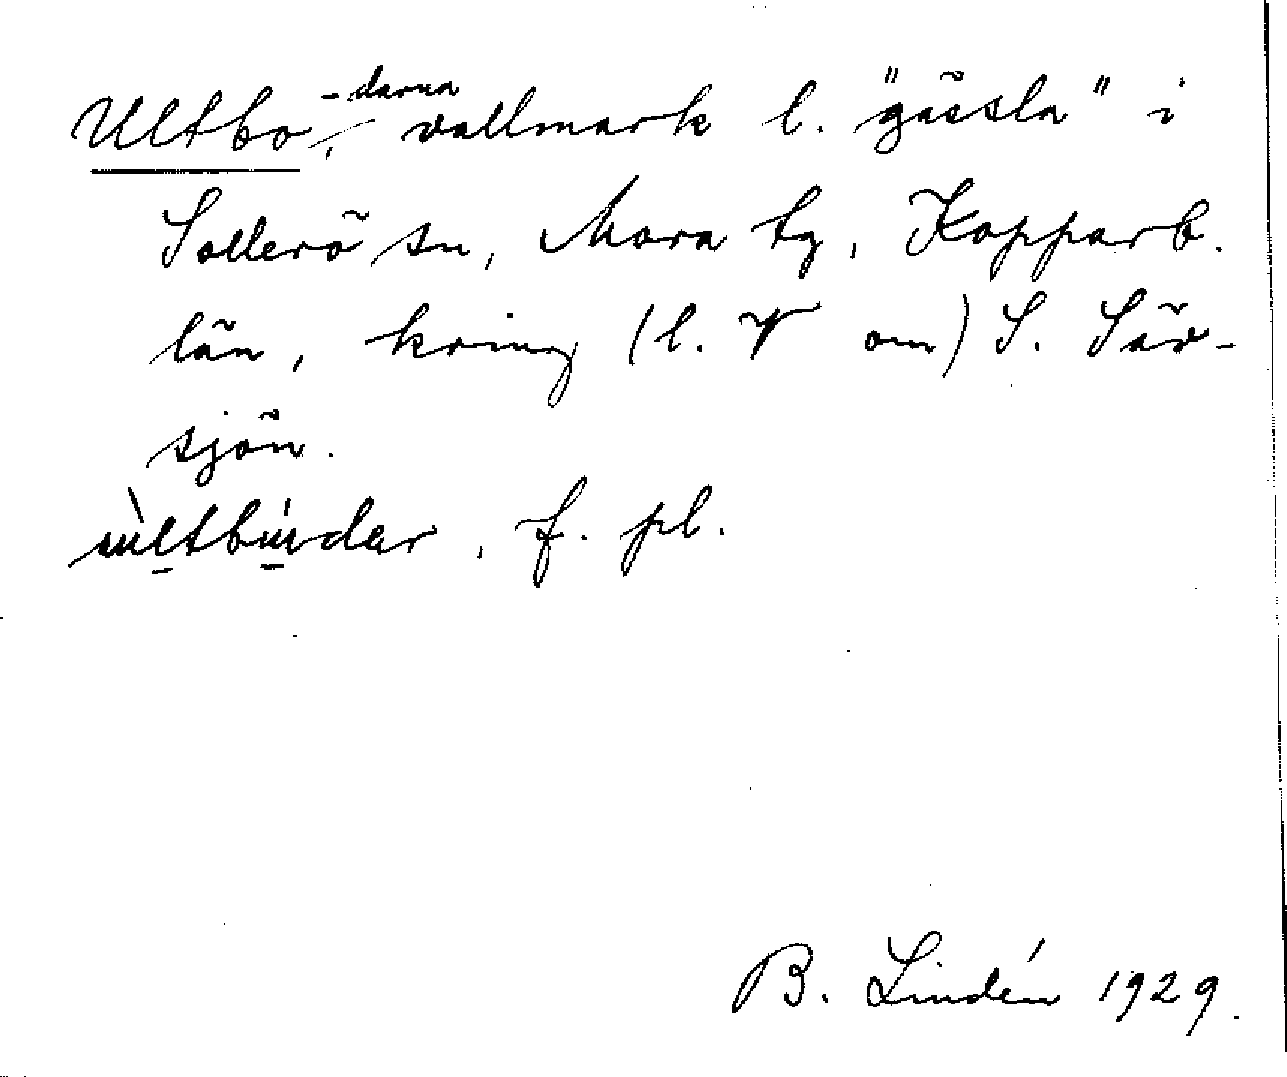 Ultbo, -darna vallmark l. "gässla" i
Sollerö sn, Mora tg, Kopparb.
län, kring (l. V om) S. Sär-
sjön.
ùltbúdar, f. pl.
B. Lindén 1929.